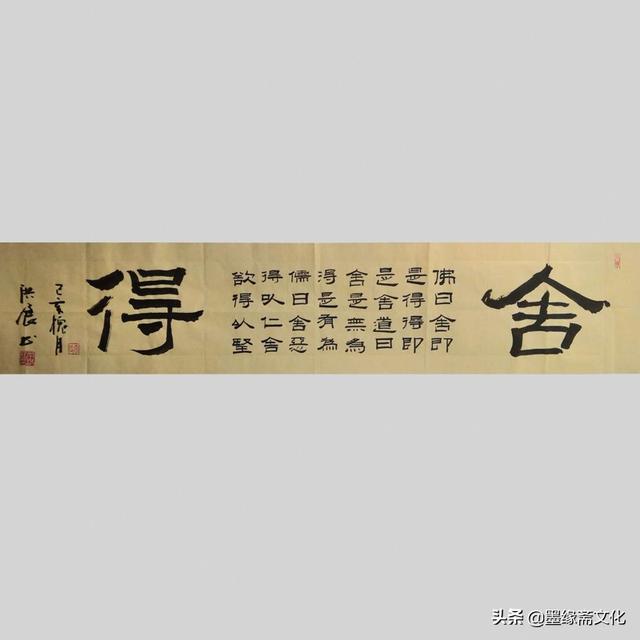 舍
佛曰舍即
是得得即
是舍道曰
舍是無為
得是有為
儒曰舍惡
得以仁舍
欲得以
得
己亥月
洪展书
头条 @墨缘斋文化